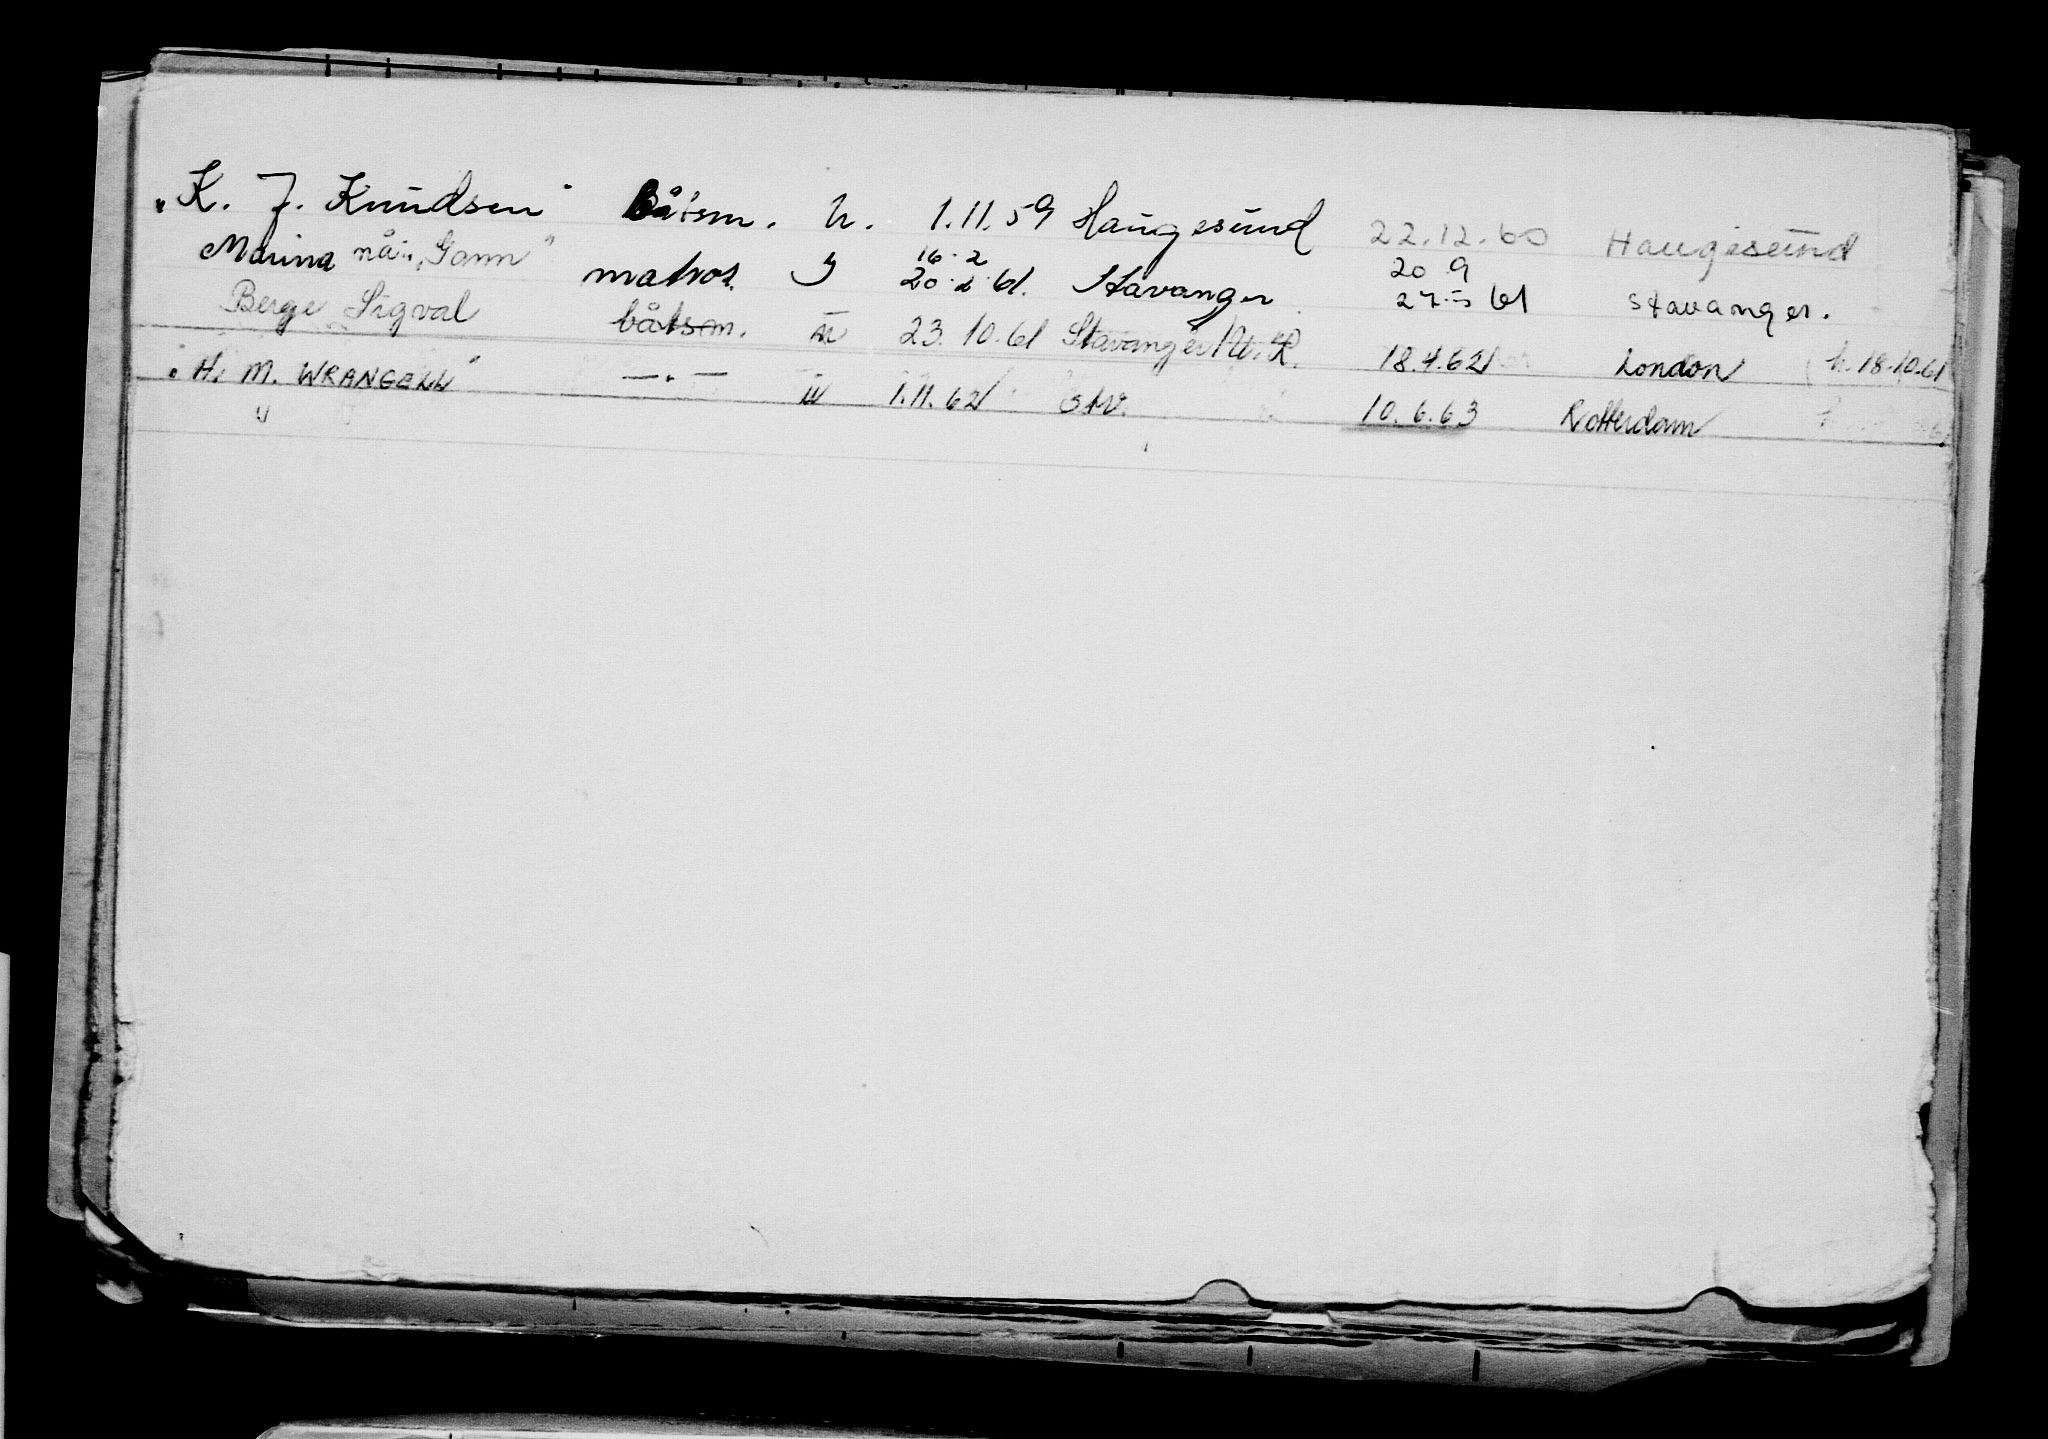 "K. J. Knudsen" Båtsm. U. 1.11.59 Haugesund 22.12.60 Haugesund
Marina nå: "Gann" matros. Y 16.2 20.2.61. Stavanger 20 9 27.5 61 Stavanger.
Berge Sigval båtsm. 23.10.61 Stavanger 18.4.62 London h. 18.10.61
"H. M. WRANGELL" —"— IV 1.11.62 Stv. 10.6.63 Rotterdam